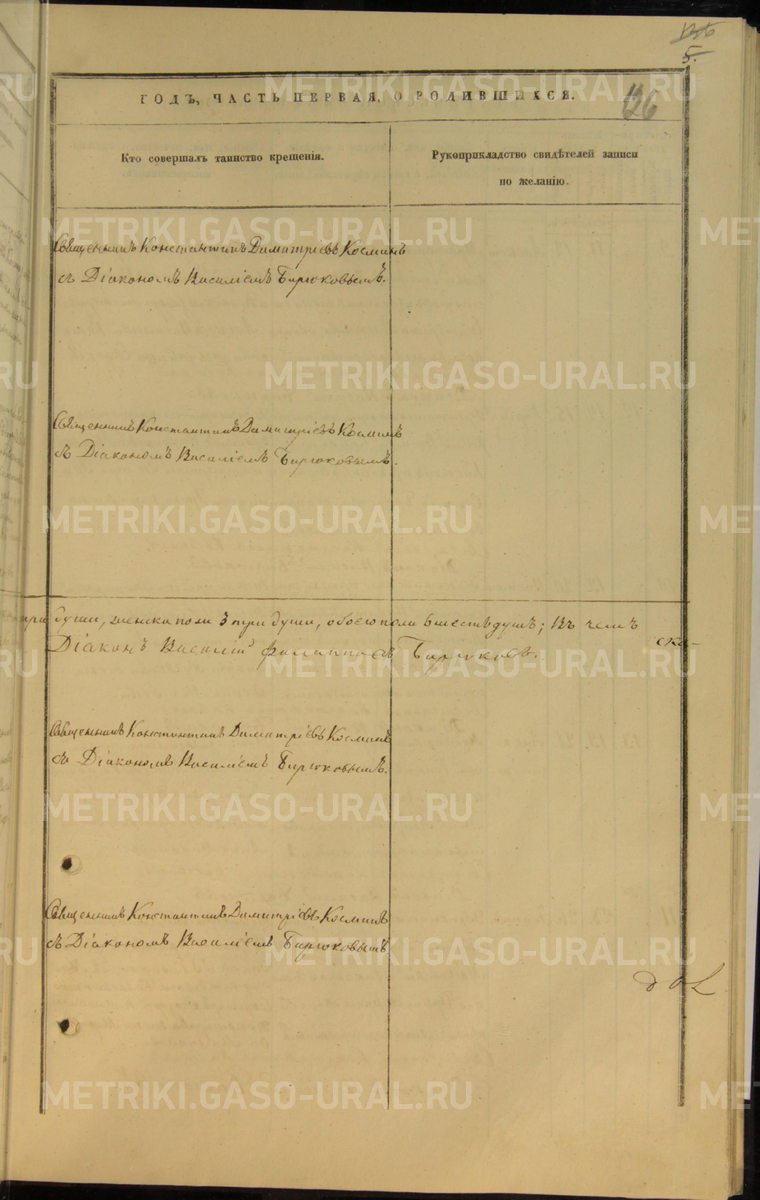 126
5.
126
ГОДЪ, ЧАСТЬ ПЕРВАЯ, О РОДИВШИХСЯ.
Кто совершалъ таинство крещенія.
Рукоприкладство свидѣтелей записи
по желанію.
Священникъ Константинъ Димитріевъ Косминъ
съ Діакономъ Василіемъ Бирюковымъ.
Священникъ Константинъ Димитріевъ Косминъ
съ Діакономъ Василіемъ Бирюковымъ.
три души, женска пола 3 три души, обоего пола 6 шесть душъ; Въ чемъ
Діаконъ Василій Филипповъ Бирюковъ.
Священникъ Константинъ Димитріевъ Косминъ
съ Діакономъ Василіемъ Бирюковымъ.
Священникъ Константинъ Димитріевъ Косминъ
съ Діакономъ Василіемъ Бирюковымъ
METRIKI.GASO-URAL.RU